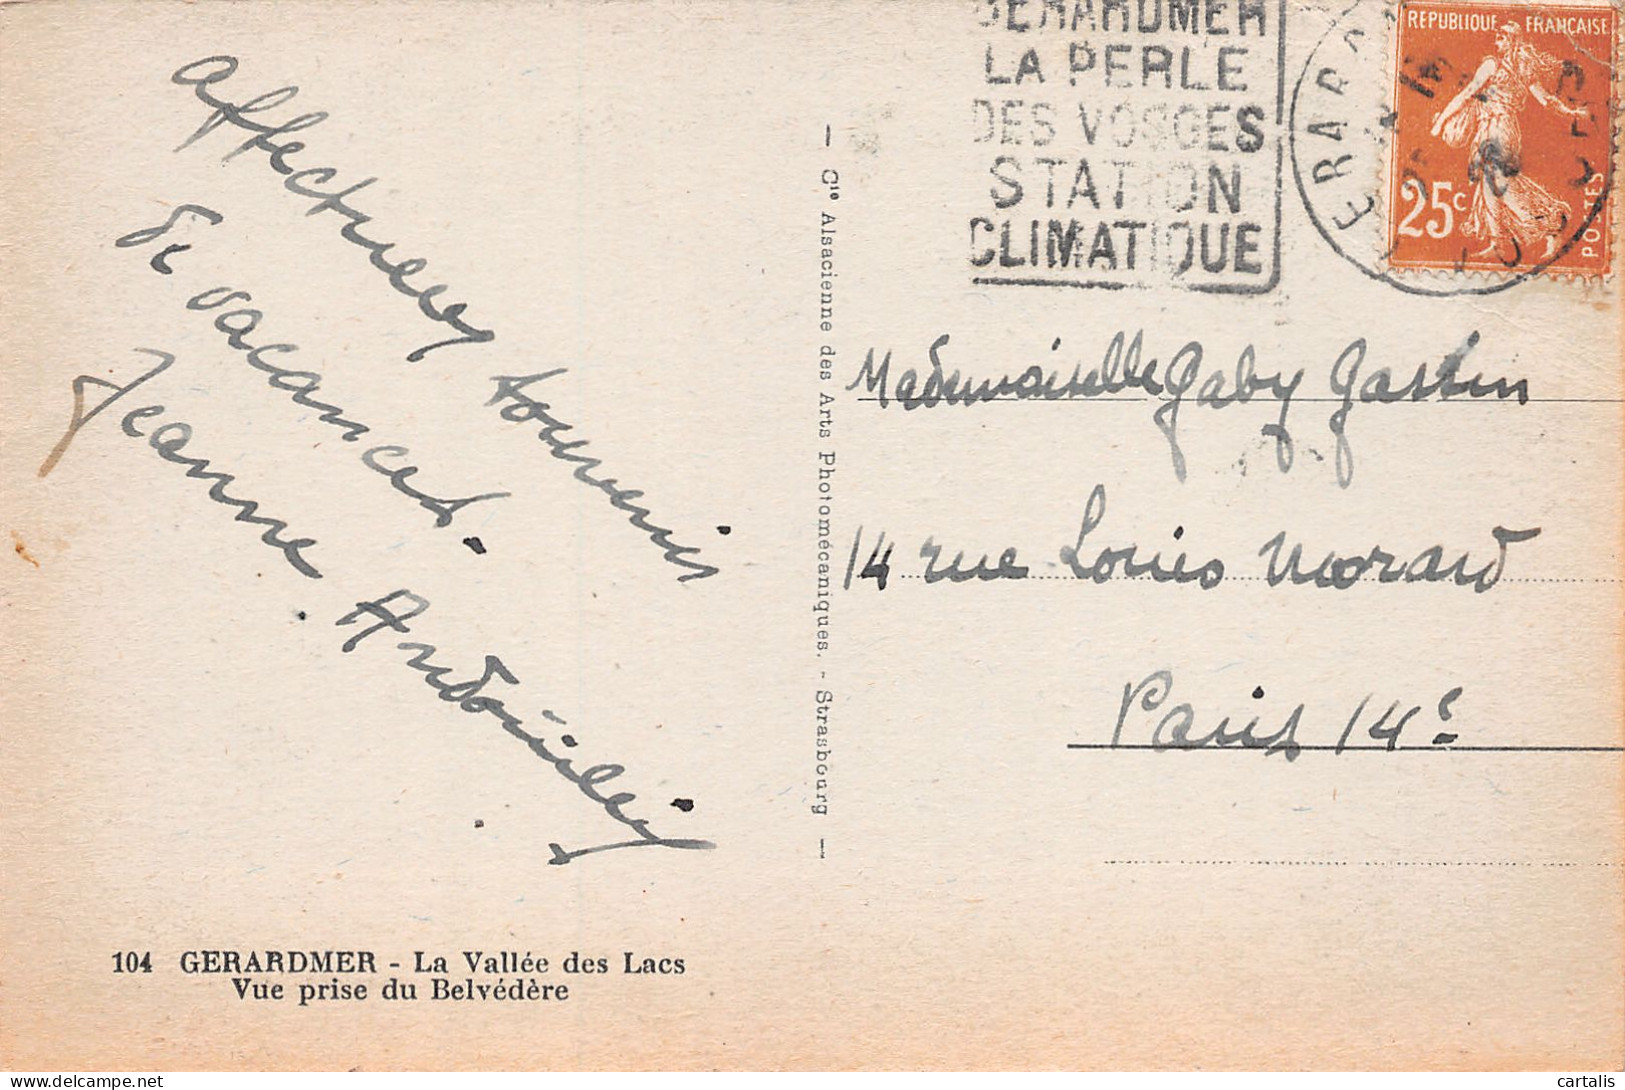 affectueux souvenir
de vacances.
Jeanne Andouillej
104 GERARDMER - La Vallée des Lacs
Vue prise du Belvédère
— Cie Alsacienne des Arts Photomécaniques. - Strasbourg —
GERARDMER
LA PERLE
DES VOSGES
STATION
CLIMATIQUE
REPUBLIQUE FRANÇAISE
25c
POSTES
Mademoiselle Gaby Gassin
14 rue Louis Morard
Paris 14e
cartalis